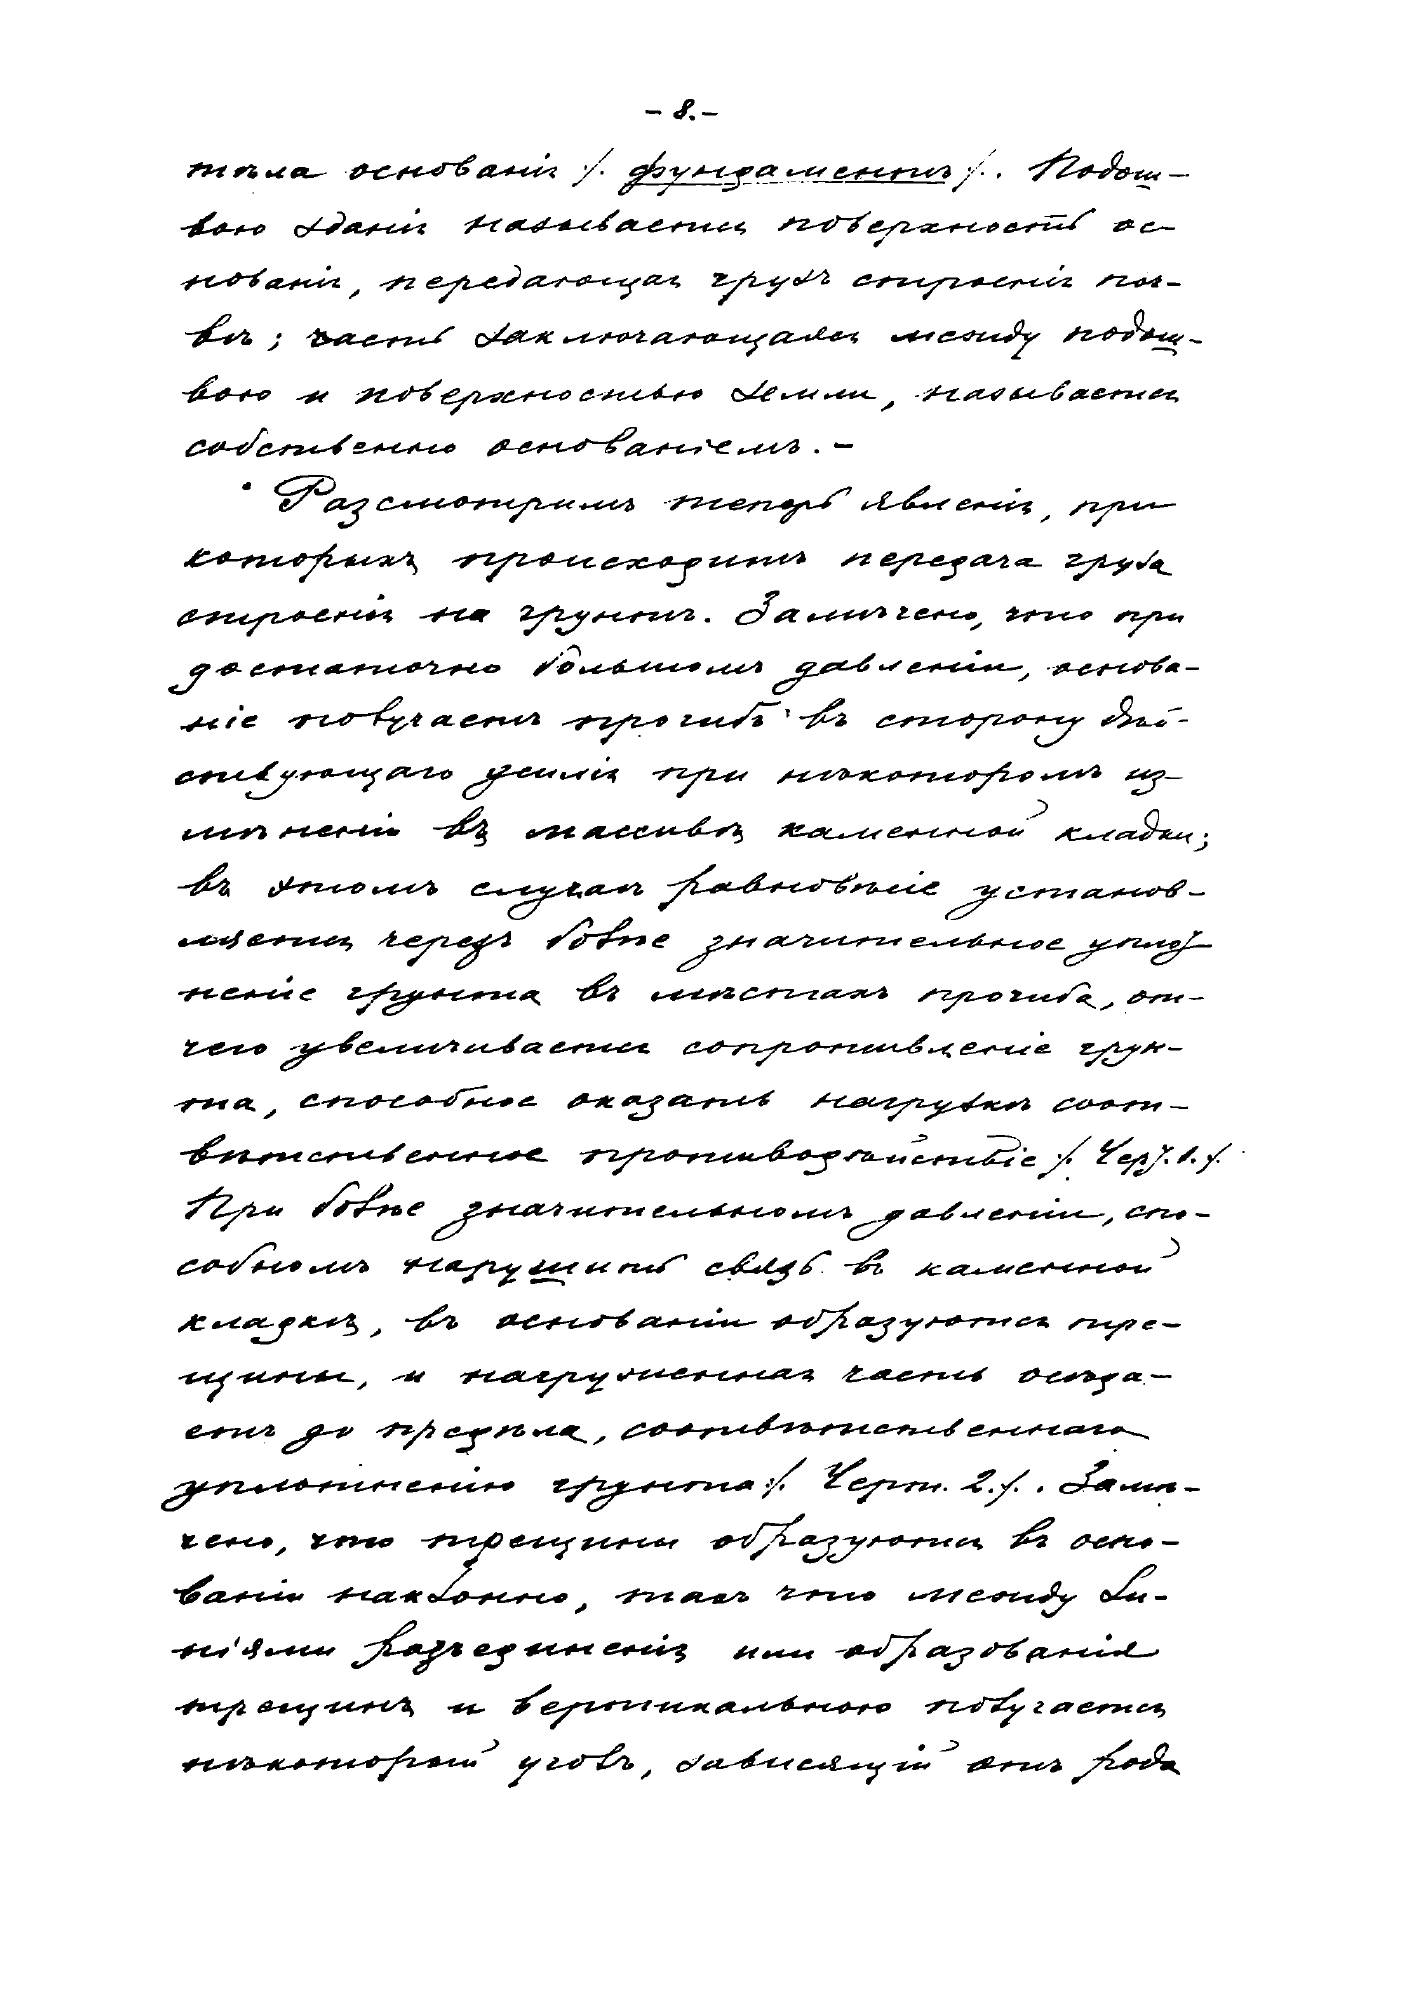 - 8. -
тѣла основанія /. фундаментъ /. . Подош-
вою зданія называется поверхность ос-
нованія, передающая грузъ строенія поч-
вѣ; часть заключающаяся между подош-
вою и поверхностью земли, называется
собственно основаніемъ. -
Разсмотримъ теперь явленія, при
которыхъ происходитъ передача груза
строенія на грунтъ. Замѣчено, что при
достаточно большомъ давленіи, основа-
ніе получаетъ прогибъ въ сторону дѣй-
ствующаго усилія при нѣкоторомъ из-
мѣненіи въ массивѣ каменной кладки;
въ этомъ случаѣ равновѣсіе установ-
ляется черезъ болѣе значительное уплот-
неніе грунта въ мѣстахъ прогиба, от-
чего увеличивается сопротивленіе грун-
та, способное оказать нагрузкѣ соот-
вѣтственное противодѣйствіе /. Черт. 1. /.
При болѣе значительномъ давленіи, спо-
собномъ нарушить связь въ каменной
кладкѣ, въ основаніи образуются тре-
щины, и нагруженная часть осѣда-
етъ до предѣла, соотвѣтственнаго
уплотненію грунта /. Черт. 2. /. . Замѣ-
чено, что трещины образуются въ осно-
ваніи наклонно, такъ что между ли-
ніями разъединенія или образованія
трещинъ и вертикальною получается
нѣкоторый уголъ, зависящій отъ рода